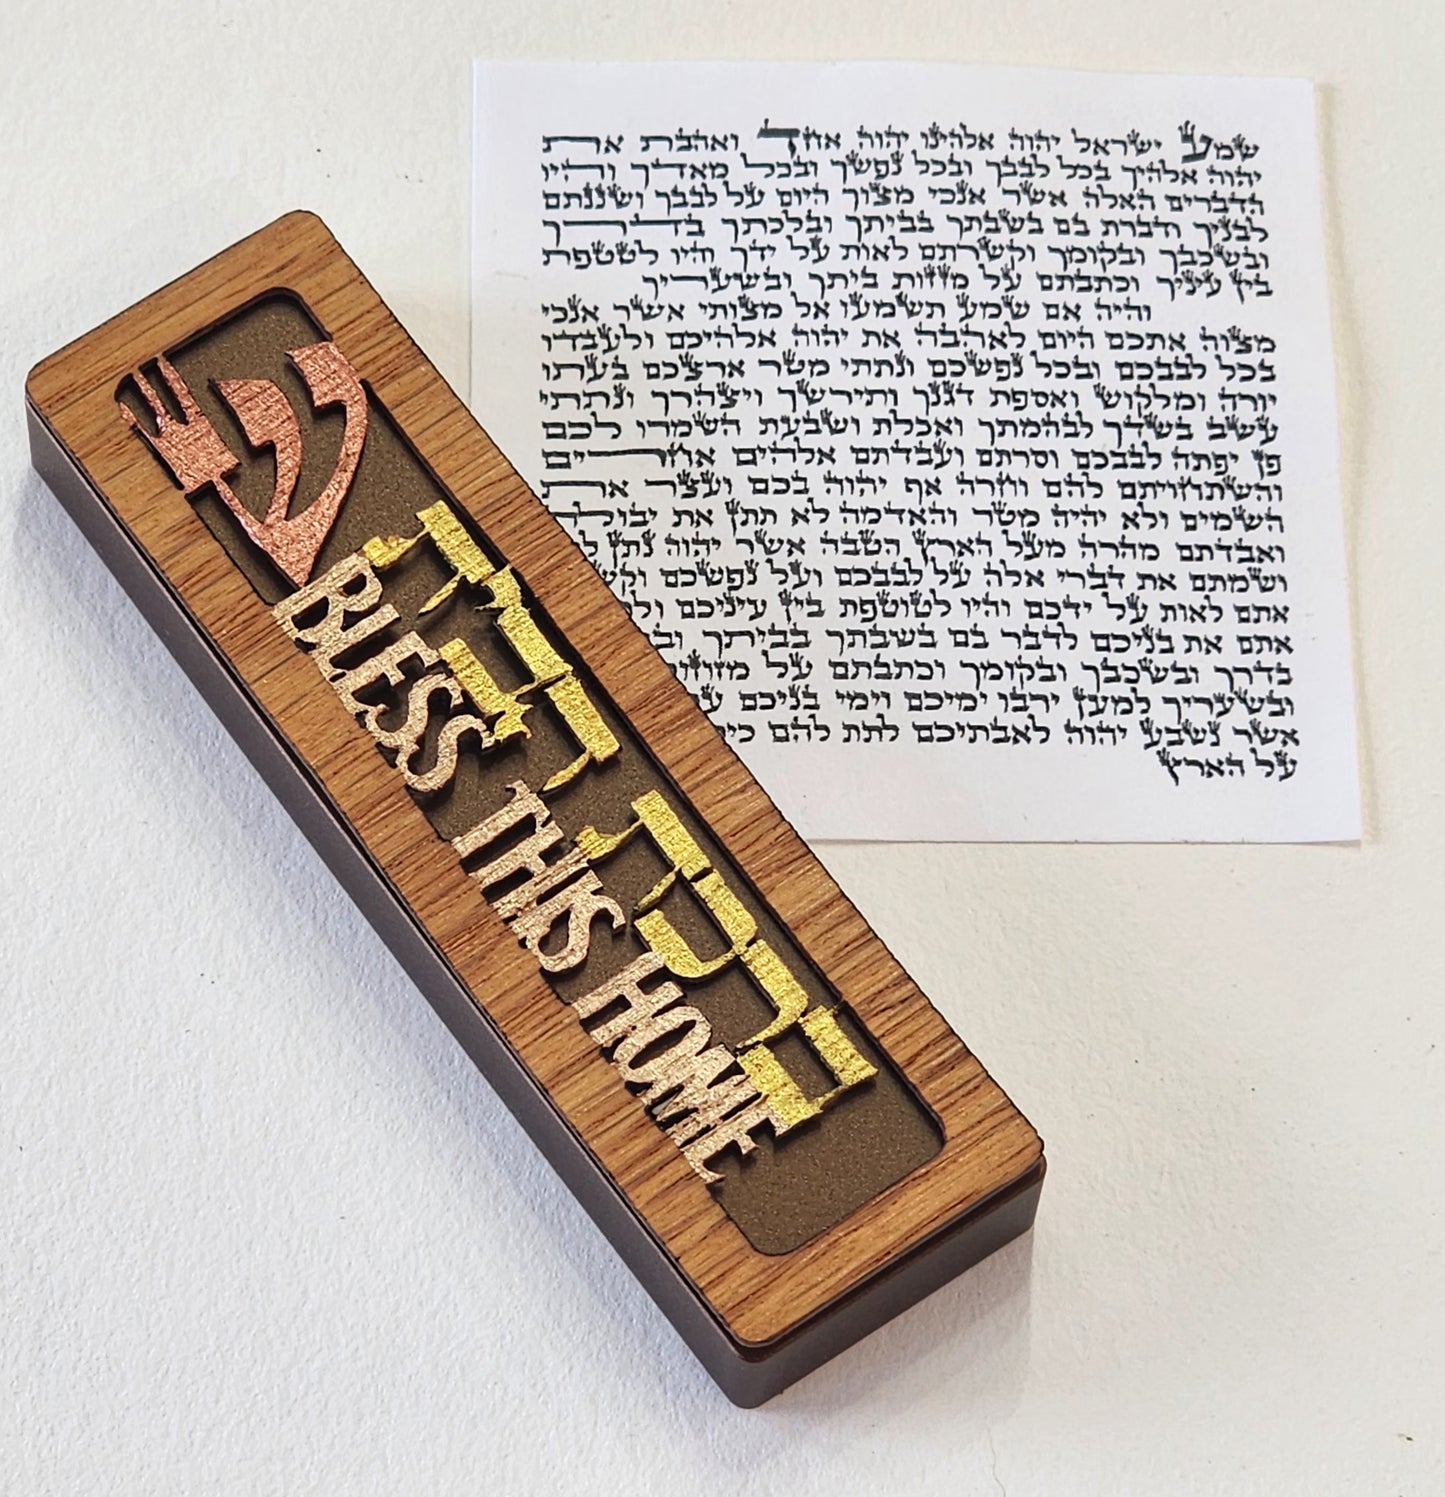 שמע ישראל יהוה אלהינו יהוה אחד ואהבת את
יהוה אלהיך בכל לבבך ובכל נפשך ובכל מאדך והיו
הדברים האלה אשר אנכי מצוך היום על לבבך ושננתם
לבניך ודברת בם בשבתך בביתך ובלכתך בדרך
ובשכבך ובקומך וקשרתם לאות על ידך והיו לטטפת
בין עיניך וכתבתם על מזזות ביתך ובשעריך
והיה אם שמע תשמעו אל מצותי אשר אנכי
מצוה אתכם היום לאהבה את יהוה אלהיכם ולעבדו
בכל לבבכם ובכל נפשכם ונתתי מטר ארצכם בעתו
יורה ומלקוש ואספת דגנך ותירשך ויצהרך ונתתי
עשב בשדך לבהמתך ואכלת ושבעת השמרו לכם
פן יפתה לבבכם וסרתם ועבדתם אלהים אחרים
והשתחויתם להם וחרה אף יהוה בכם ועצר את
השמים ולא יהיה מטר והאדמה לא תתן את יבולה
ואבדתם מהרה מעל הארץ הטבה אשר יהוה נתן
ושמתם את דברי אלה על לבבכם ועל נפשכם
אתם לאות על ידכם והיו לטוטפת בין עיניכם
אתם את בניכם לדבר בם בשבתך בביתך
בדרך ובשכבך ובקומך וכתבתם על
ובשעריך למען ירבו ימיכם וימי בניכם
אשר נשבע יהוה לאבתיכם לתת להם
על הארץ
ש
ברכת הבית
BLESS THIS HOME